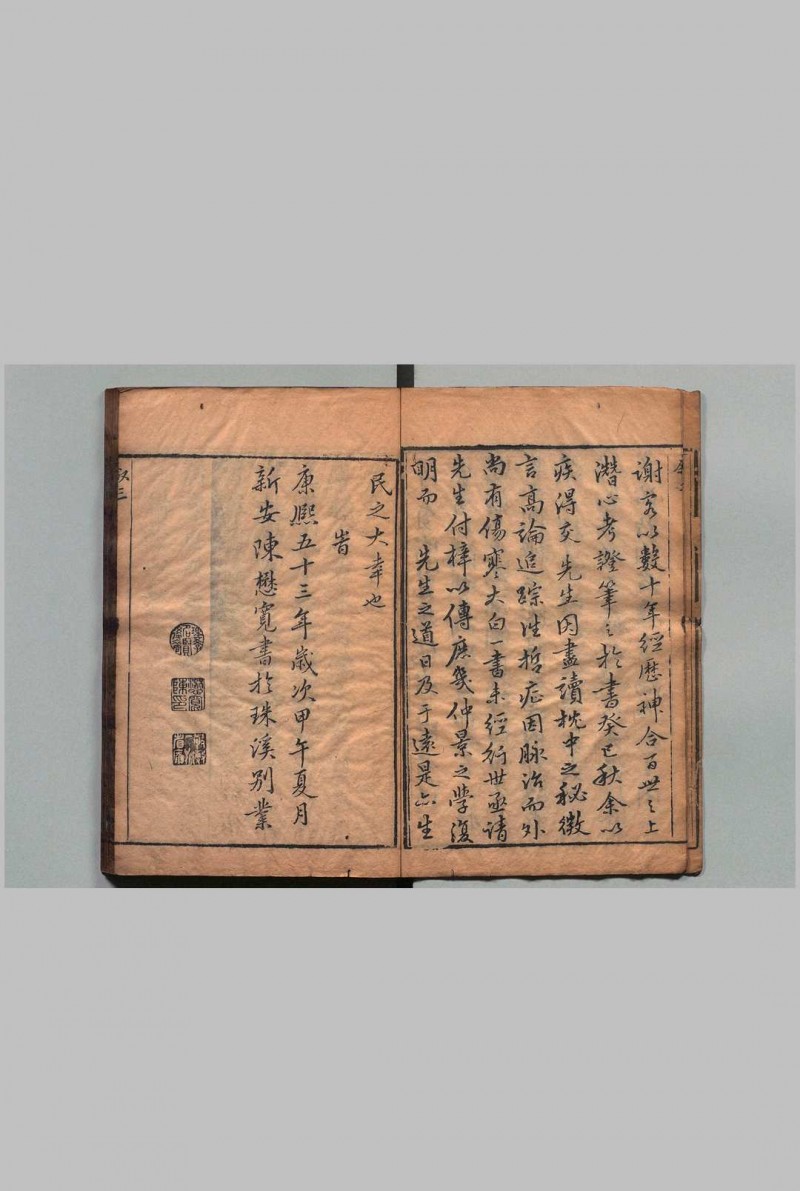 謝客以數十年經歷神合百世之上
潛心考證筆之於書癸巳秋余以
疾得交 先生因盡讀枕中之秘徴
言高論追踪往哲症因脉治而外
尚有傷寒大白一書未經行世亟請
先生付梓以傳庶幾仲景之學復
明而 先生之道日及于遠是亦生
民之大幸也
旹
康熙五十三年歲次甲午夏月
新安陳懋寬書於珠溪別業
叙三